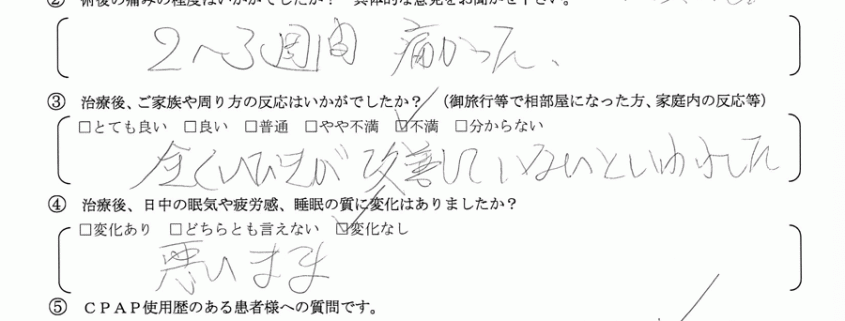 ② 術後の痛みの程度はいかがでしたか? 具体的な意見をお聞かせ下さい。
2〜3週間 痛かった、
③ 治療後、ご家族や周り方の反応はいかがでしたか? (御旅行等で相部屋になった方、家庭内の反応等)
□とても良い □良い □普通 □やや不満 ☑不満 □分からない
全くいびきが改善していないといわれました
④ 治療後、日中の眠気や疲労感、睡眠の質に変化はありましたか?
□変化あり □どちらとも言えない ☑変化なし
悪いまま
⑤ CPAP使用歴のある患者様への質問です。